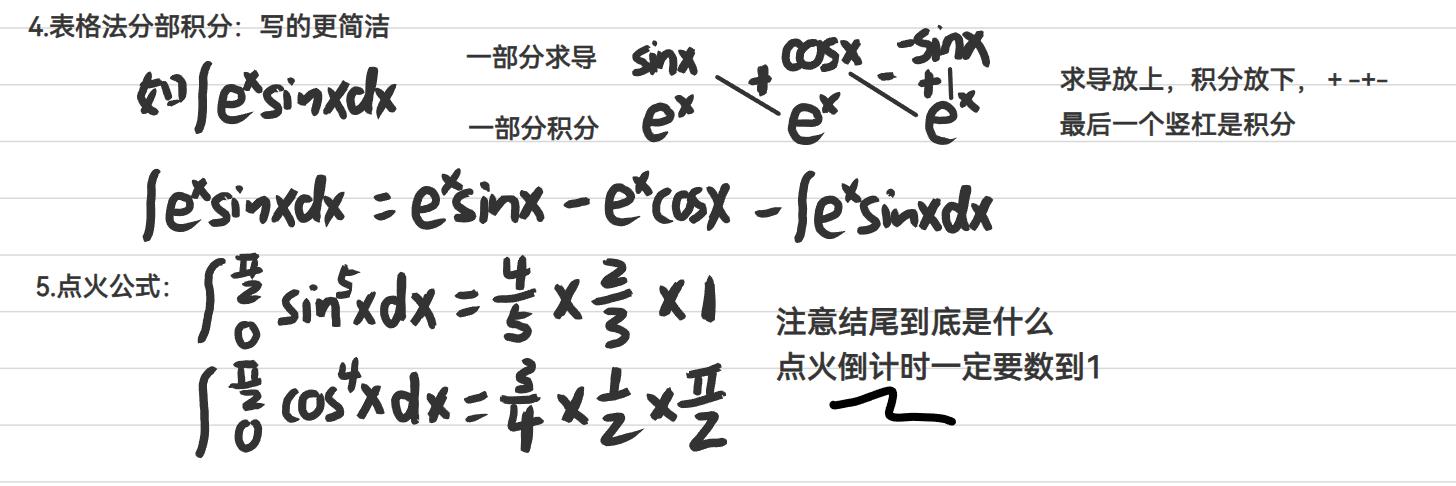 4.表格法分部积分：写的更简洁
如 ∫eˣsinxdx
一部分求导 sinx + cosx - -sinx
一部分积分 eˣ eˣ + eˣ
求导放上，积分放下， + -+-
最后一个竖杠是积分
∫eˣsinxdx = eˣsinx - eˣcosx - ∫eˣsinxdx
5.点火公式： ∫₀^(π/2) sin⁵xdx = 4/5 × 2/3 × 1
∫₀^(π/2) cos⁴xdx = 3/4 × 1/2 × π/2
注意结尾到底是什么
点火倒计时一定要数到1